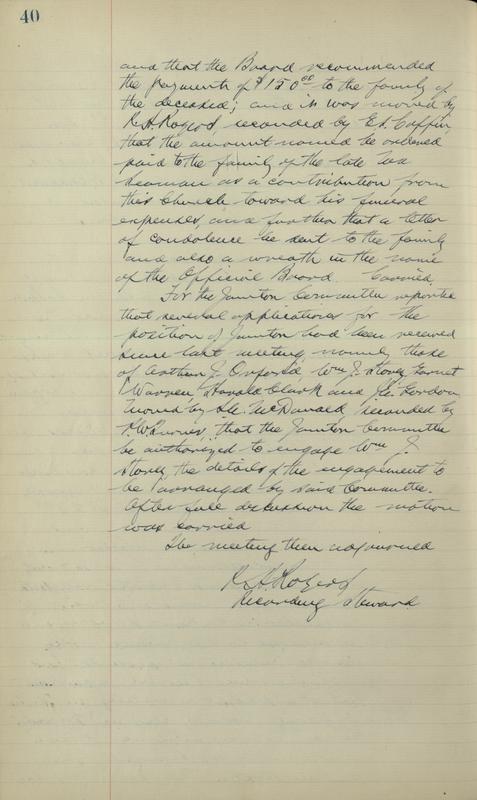 40
and that the Board recommended
the payment of $150.00 to the family of
the deceased; and it was moved by
R.H. Rogers, seconded by Ed. Coffin,
that the amount named be ordered
paid to the family of the late
Seaman as a contribution from
this Church toward his funeral
expenses, and further that a letter
of condolence be sent to the family
and also a wreath in the name
of the Official Board. Carried.
For the Janitor Committee reported
that several applications for the
position of Janitor had been received
since last meeting, namely those
of Arthur J. Oxford, Wm J. Storey, Garnet
Warren, Harold Clark and Gordon
Moved by McDonald, seconded by
that the Janitor Committee
be authorized to engage Wm J.
Storey the details of the engagement to
be arranged by said Committee.
After full discussion the motion
was carried
The meeting then adjourned
R.H. Rogers
Recording Steward